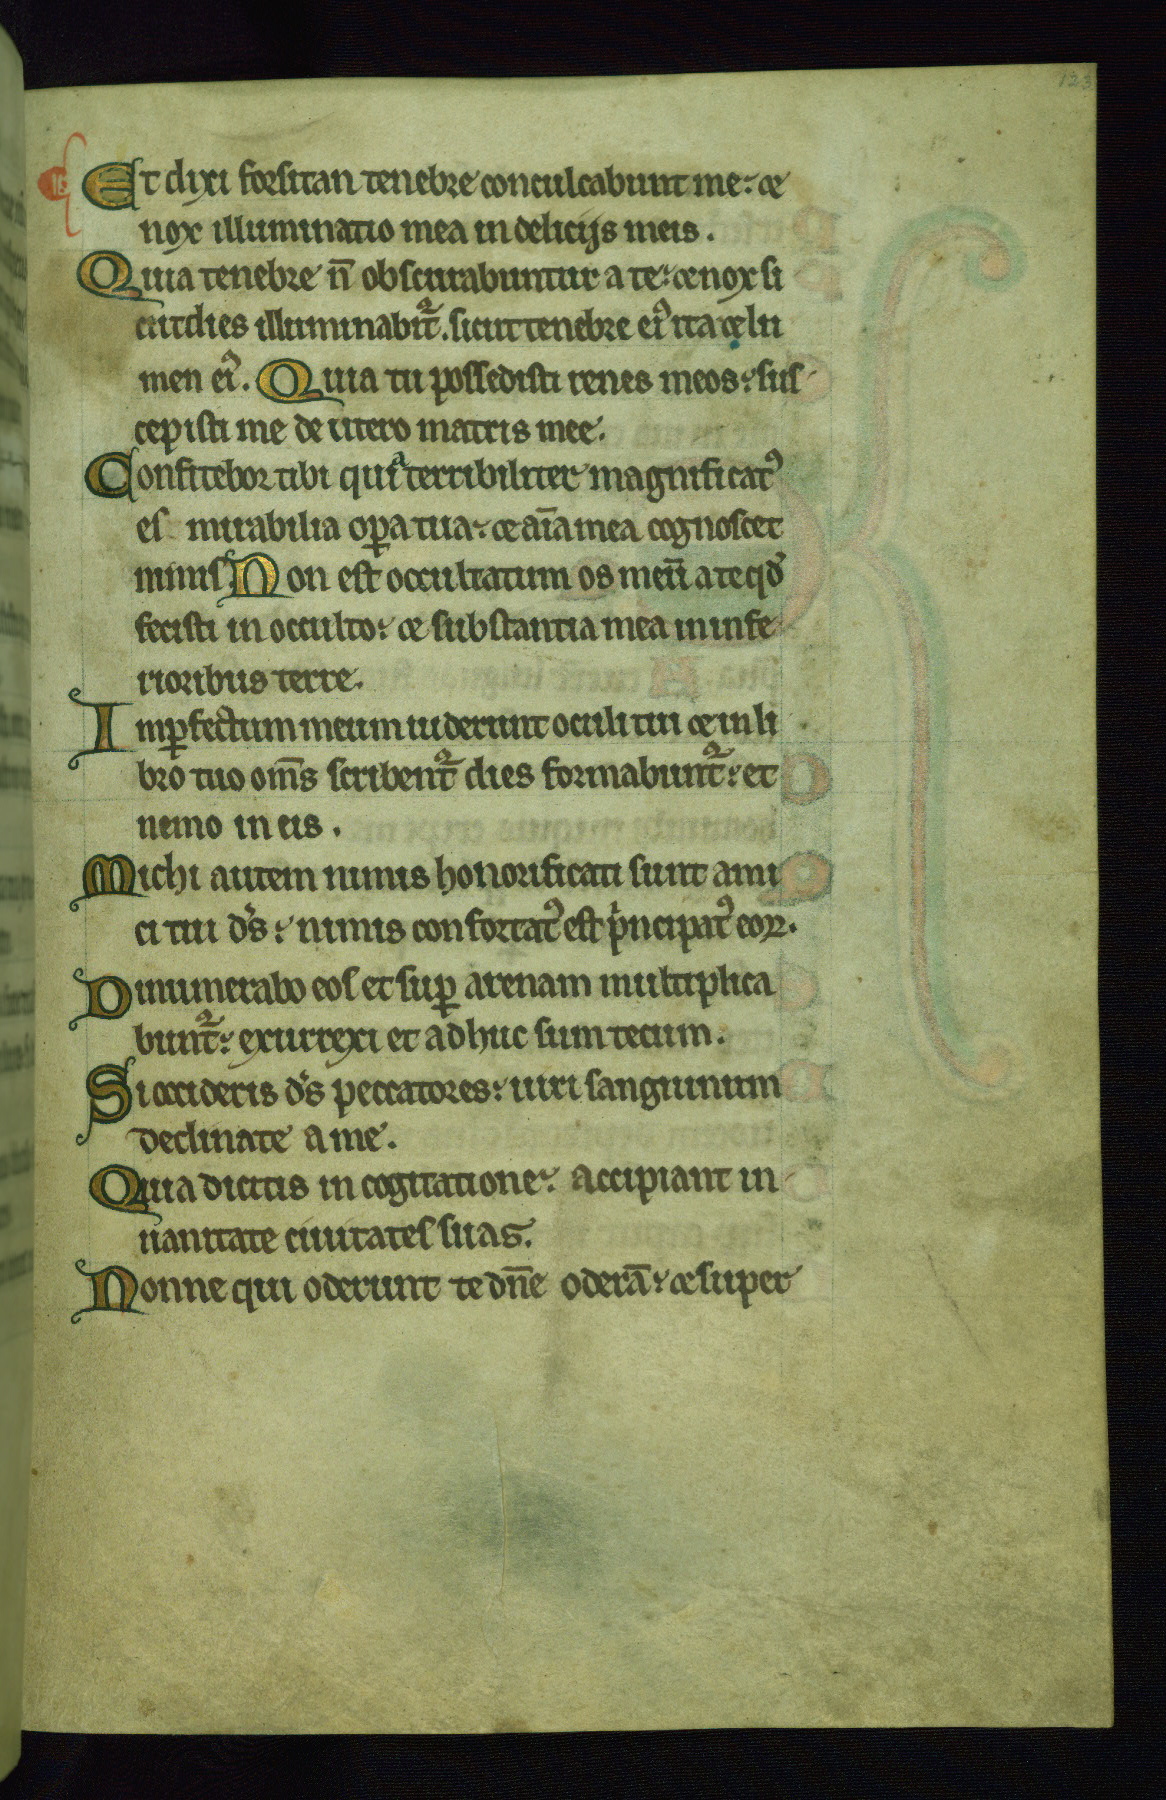 123
Et dixi forsitan tenebre conculcabunt me: &
nox illuminatio mea in delicijs meis.
Quia tenebre n̄ obscurabuntur a te: & nox si
cut dies illuminabit᷑. sicut tenebre eiꝰ ita & lu
men eiꝰ. Quia tu possedisti renes meos: sus-
cepisti me de utero matris mee.
Confitebor tibi quia terribiliter magnificatꝰ
es mirabilia oꝑa tua: & aīa mea cognoscet
nimis Non est occultatum os meū a te qd̓
fecisti in occulto: & substantia mea in infe
rioribus terre.
Imꝑfectum meum uiderunt oculi tui & in li
bro tuo om̄s scribent᷑ dies formabunt᷑: et
nemo in eis.
Michi autem nimis honorificati sunt ami
ci tui ds̄: nimis confortatꝰ est pⁱncipatꝰ eoꝝ.
Dinumerabo eos et suꝑ arenam multiplica
bunt᷑: exurrexi et adhuc sum tecum.
Si occideris ds̄ peccatores: uiri sanguinum
declinate a me.
Quia dicitis in cogitatione: accipiant in
uanitate ciuitates suas.
Nonne qui oderunt te dn̄e oderā: & super